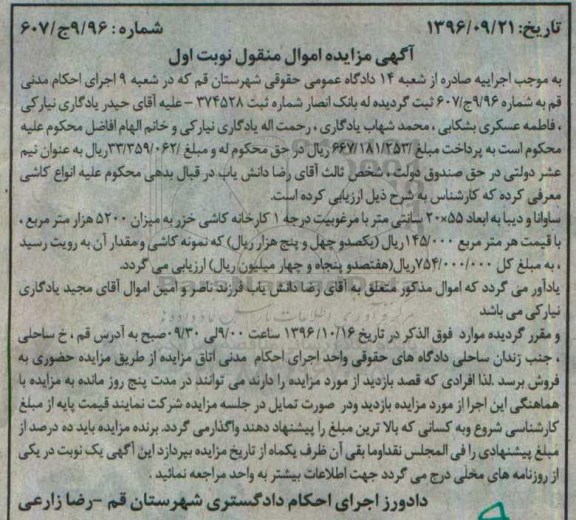 تاریخ: ۱۳۹۶/۰۹/۲۱
شماره: ۹/۹۶ج/۶۰۷
آگهی مزایده اموال منقول نوبت اول
به موجب اجراییه صادره از شعبه ۱۴ دادگاه عمومی حقوقی شهرستان قم که در شعبه ۹ اجرای احکام مدنی
قم به شماره ۹/۹۶ج/۶۰۷ ثبت گردیده له بانک انصار شماره ثبت ۳۷۴۵۲۸ – علیه آقای حیدر یادگاری نیارکی
، فاطمه عسکری بشکانی ، محمد شهاب یادگاری ، رحمت اله یادگاری نیارکی و خانم الهام افاضل محکوم علیه
محکوم است به پرداخت مبلغ /۶۶۷/۱۸۱/۲۵۳ ریال در حق محکوم له و مبلغ /۳۳/۳۵۹/۰۶۲ریال به عنوان نیم
عشر دولتی در حق صندوق دولت ، شخص ثالث آقای رضا دانش یاب در قبال بدهی محکوم علیه انواع کاشی
معرفی کرده که کارشناس به شرح ذیل ارزیابی کرده است.
ساوانا و دیبا به ابعاد ۵۵×۲۰ سانتی متر با مرغوبیت درجه ۱ کارخانه کاشی خزر به میزان ۵۲۰۰ هزار متر مربع ،
با قیمت هر متر مربع ۱۴۵/۰۰۰ریال (یکصدو چهل و پنج هزار ریال) که نمونه کاشی و مقدار آن به رویت رسید
، به مبلغ کل ۷۵۴/۰۰۰/۰۰۰ریال(هفتصدو پنجاه و چهار میلیون ریال) ارزیابی می گردد.
یادآور می گردد که اموال مذکور متعلق به آقای رضا دانش یاب فرزند ناصر و امین اموال آقای مجید یادگاری
نیارکی می باشد
و مقرر گردیده موارد فوق الذکر در تاریخ ۱۳۹۶/۱۰/۱۶ ساعت ۹/۰۰لی ۰۹/۳۰صبح به آدرس قم ، خ ساحلی
، جنب زندان ساحلی دادگاه های حقوقی واحد اجرای احکام مدنی اتاق مزایده از طریق مزایده حضوری به
فروش برسد .لذا افرادی که قصد بازدید از مورد مزایده را دارند می توانند در مدت پنج روز مانده به مزایده با
هماهنگی این اجرا از مورد مزایده بازدید ودر صورت تمایل در جلسه مزایده شرکت نمایند قیمت پایه از مبلغ
کارشناسی شروع وبه کسانی که بالا ترین مبلغ را پیشنهاد دهند واگذارمی گردد. برنده مزایده باید ده درصد از
مبلغ پیشنهادی را فی المجلس نقداوما بقی آن ظرف یکماه از تاریخ مزایده بپردازد این آگهی یک نوبت در یکی
از روزنامه های محلی درج می گردد جهت اطلاعات بیشتر به واحد مراجعه نمائید .
دادورز اجرای احکام دادگستری شهرستان قم –رضا زارعی